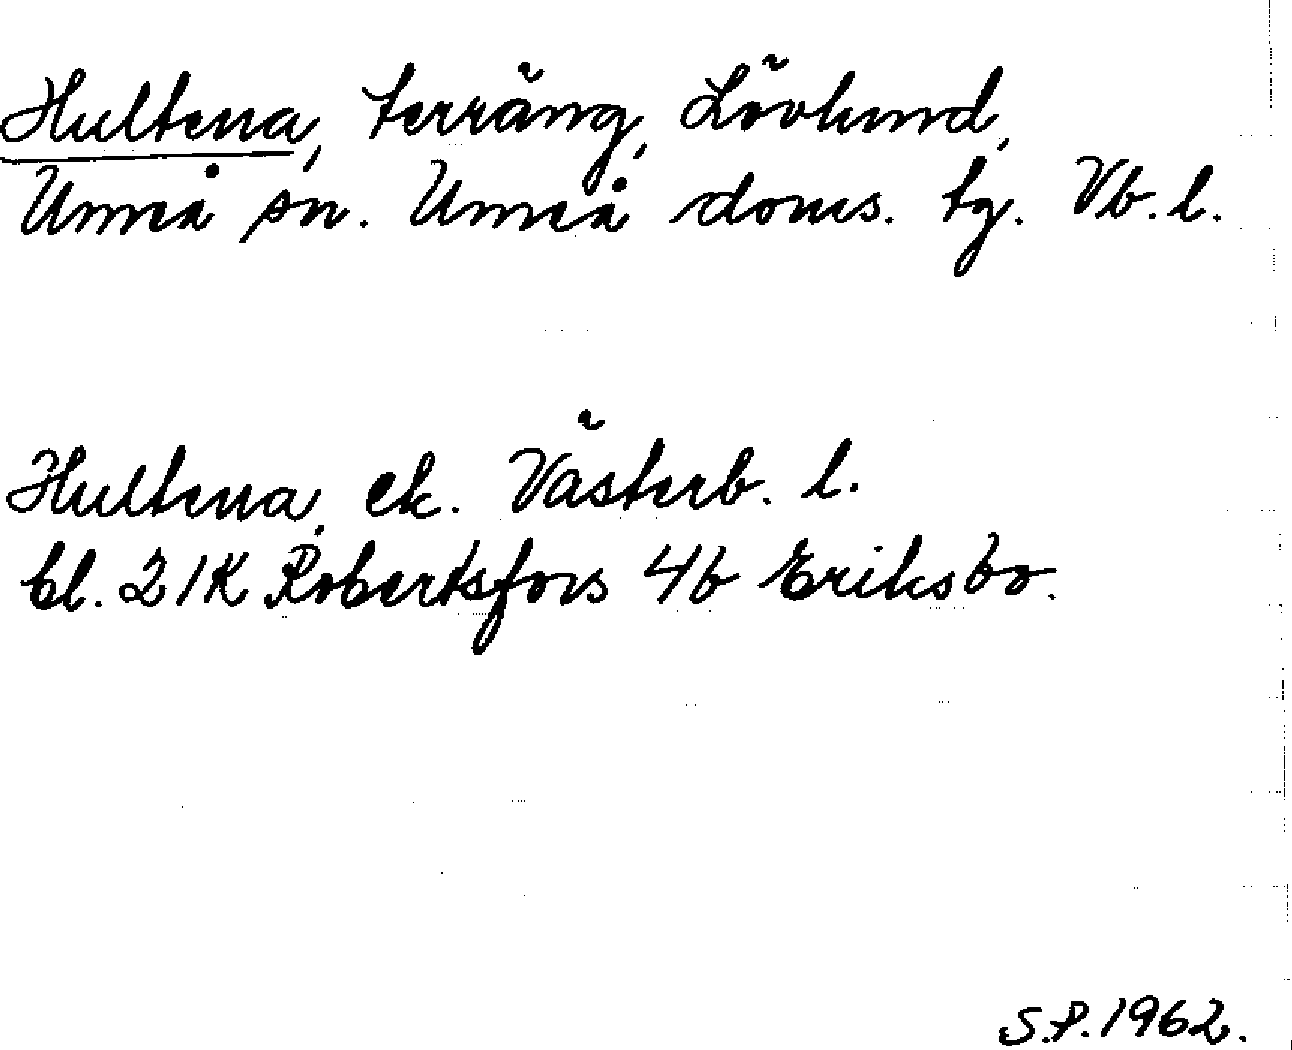 Hultena, terräng, Lövlund,
Umeå sn. Umeå doms. tg. Vb. l.
Hultena, ek. Västerb. l.
bl. 21K Robertsfors 4b Eriksbo.
S.P. 1962.